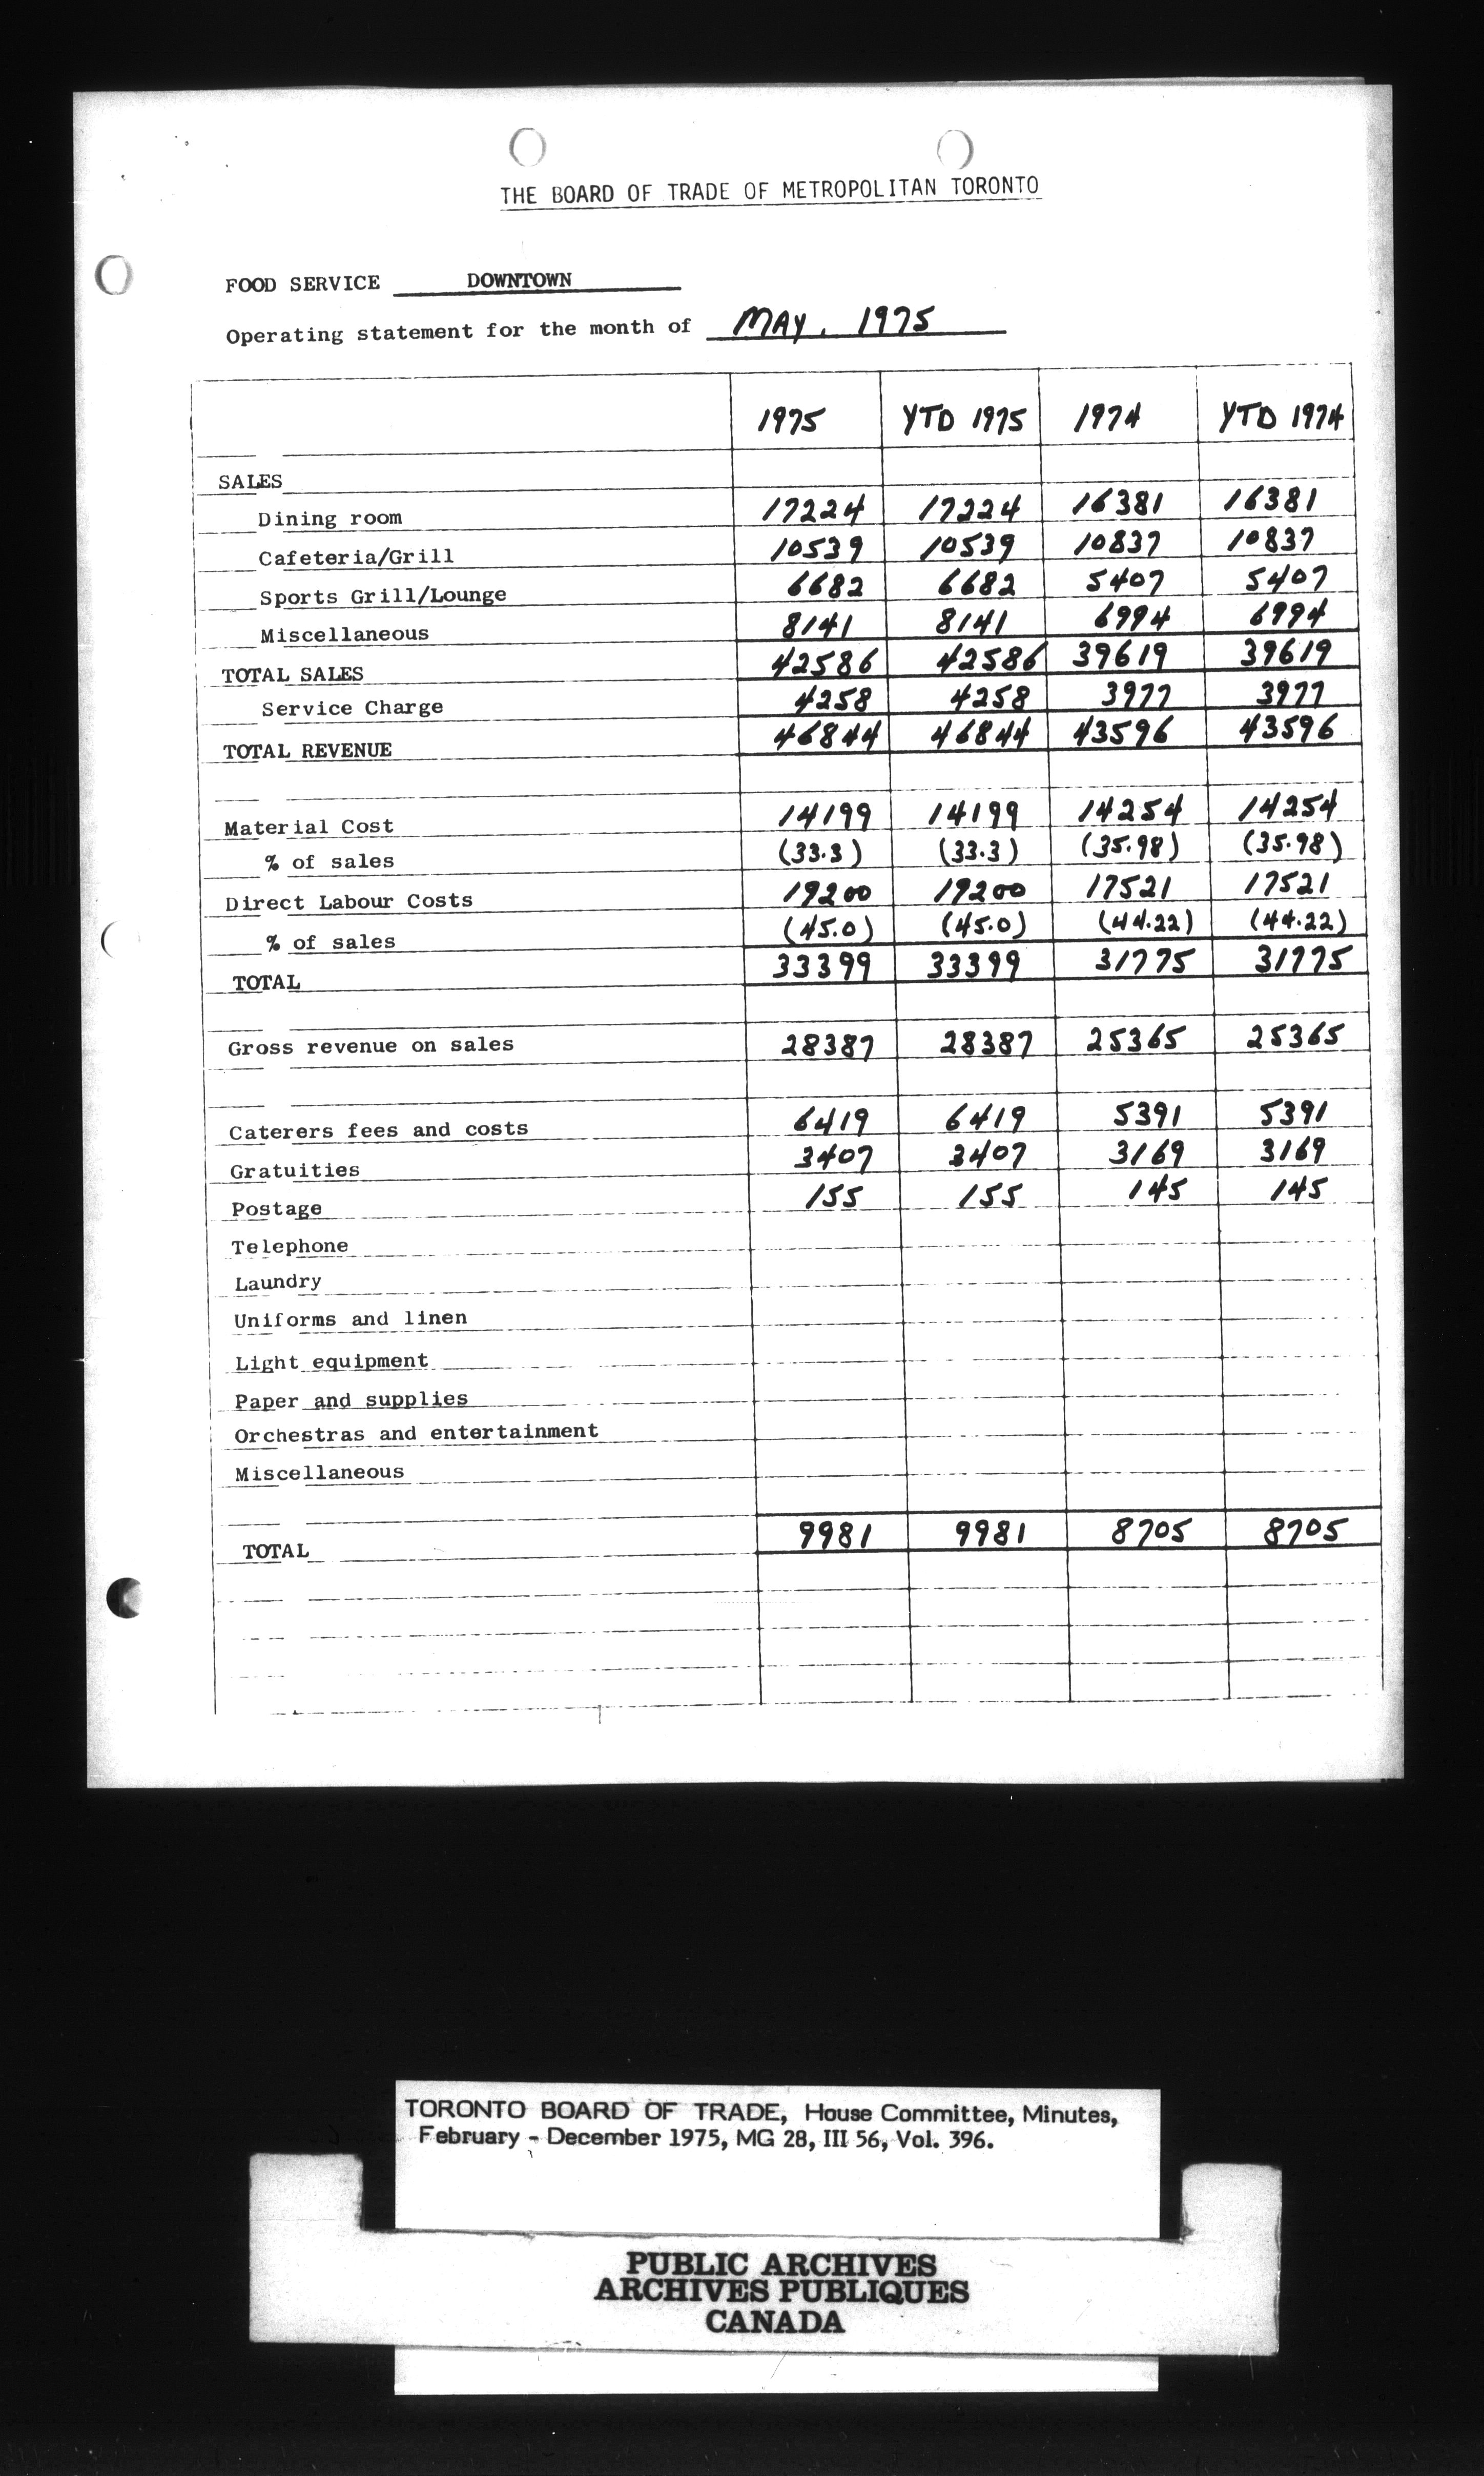 THE BOARD OF TRADE OF METROPOLITAN TORONTO
FOOD SERVICE DOWNTOWN
Operating statement for the month of MAY. 1975
1975 YTD 1975 1974 YTD 1974
SALES
Dining room 17224 17224 16381 16381
Cafeteria/Grill 10539 10539 10837 10837
Sports Grill/Lounge 6682 6682 5407 5407
Miscellaneous 8141 8141 6994 6994
TOTAL SALES 42586 42586 39619 39619
Service Charge 4258 4258 3977 3977
TOTAL REVENUE 46844 46844 43596 43596
Material Cost 14199 14199 14254 14254
% of sales (33.3) (33.3) (35.98) (35.98)
Direct Labour Costs 19200 19200 17521 17521
% of sales (45.0) (45.0) (44.22) (44.22)
TOTAL 33399 33399 31775 31775
Gross revenue on sales 28387 28387 25365 25365
Caterers fees and costs 6419 6419 5391 5391
Gratuities 3407 3407 3169 3169
Postage 155 155 145 145
Telephone
Laundry
Uniforms and linen
Light equipment
Paper and supplies
Orchestras and entertainment
Miscellaneous
TOTAL 9981 9981 8705 8705
TORONTO BOARD OF TRADE, House Committee, Minutes,
February - December 1975, MG 28, III 56, Vol. 396.
PUBLIC ARCHIVES
ARCHIVES PUBLIQUES
CANADA